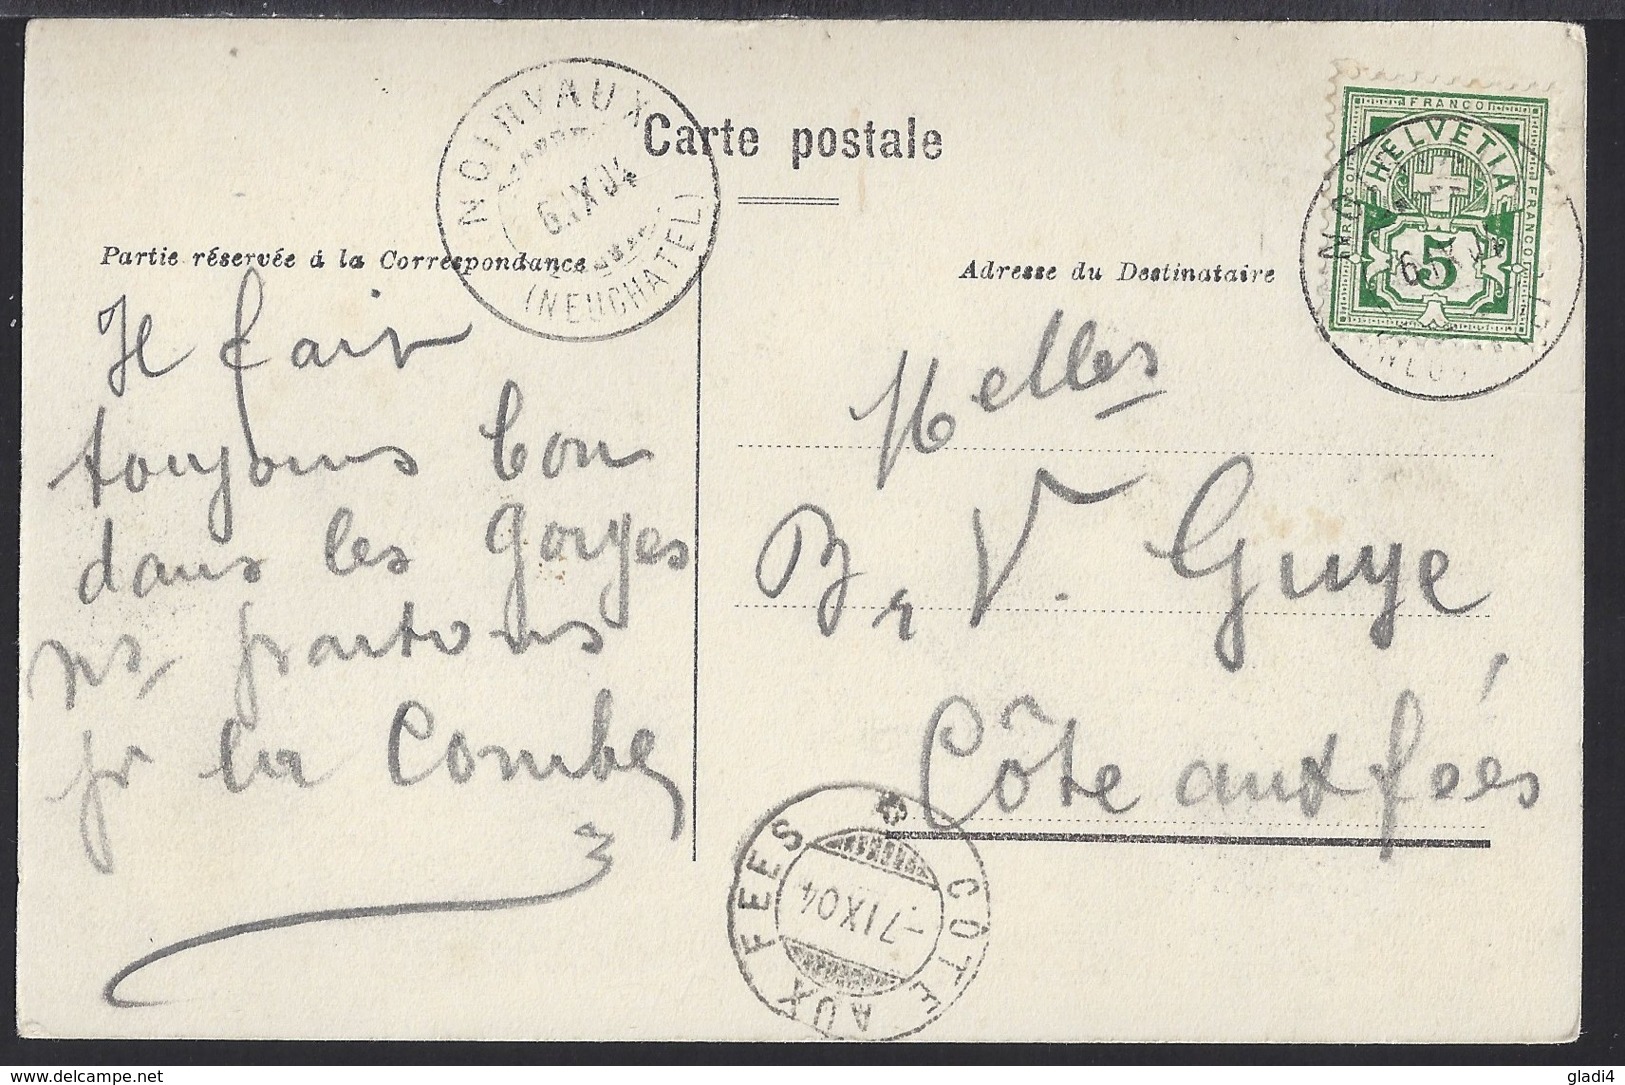 Carte postale
NOIRVAUX
6.IX.04
(NEUCHATEL)
FRANCO
FRANCO
FRANCO
HELVETIA
5
6.IX.04
Partie réservée à la Correspondance
Il fait
toujours bon
dans les gorges
ns partons
pr la Combe
Adresse du Destinataire
Melles
B. V. Guye
Côte aux fées
COTE AUX FEES
-7.IX.04
www.delcampe.net
gladi4